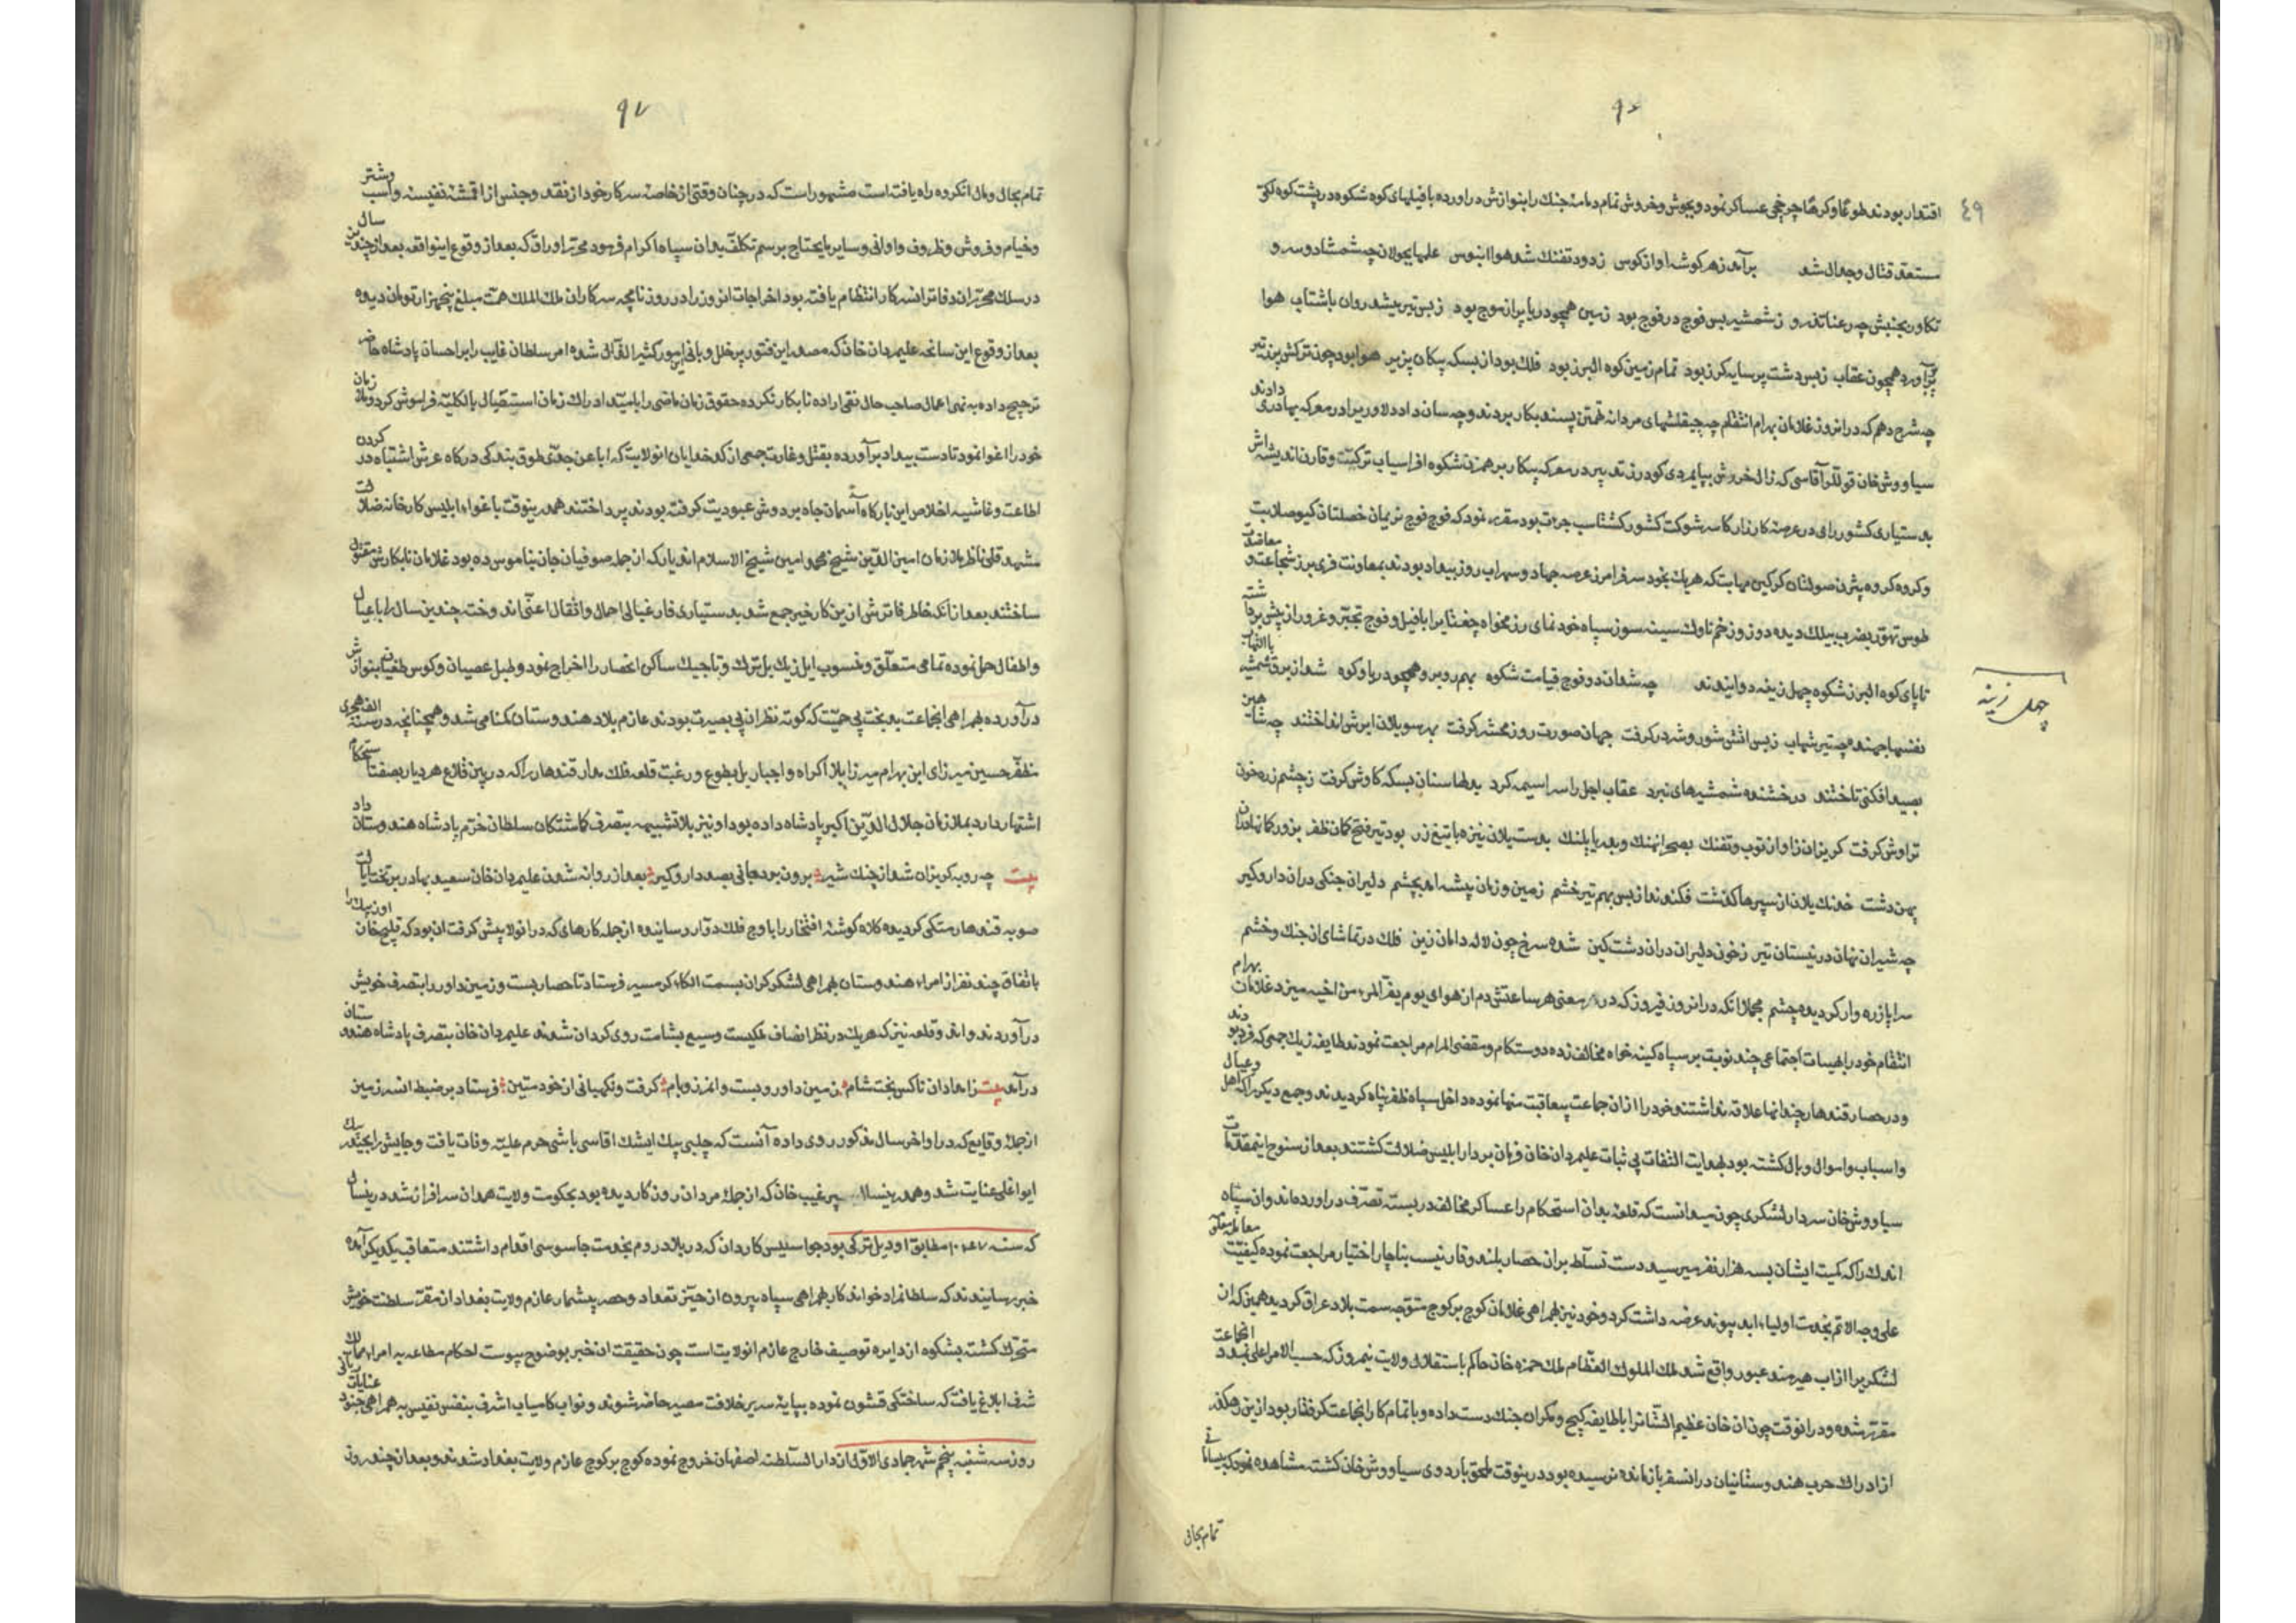 ۹۶
۴۹
اقتدار بودند طوعا و کرها چرخچی عساکر نمود و بجوش و خروش تمام دمامه جنك را بنوازش دراورده با فیلهای کوه شکوه در پشت کوه لکی
مستعد قتال و جدال شد برآمد ز هر کوشه اواز کوس ز دود تفنك شد هوا ابنوس علمها بجولان چه شمشاد و سرو
تکاور بجنبش چه رعنا تذرو ز شمشیر بس فوج در فوج بود زمین همچو دریا پر از موج بود ز بس تیر میشد روان با شتاب هوا
پر آورد همچون عقاب ز بس دشت پر سایه کرز بود تمام زمین کوه البرز بود فلك بود از بسکه پیکان پزیر هوا بود چون ترکش پر ز تیر
چه شرح دهم که در انروز غلامان بهرام انتقام چه چیقلشهای مردانه تهمتن پسند بکار بردند و چه سان داد دلاوری را در معرکه بهادری دادند
سیاووش خان قوللرآقاسی که زال خرد پیش بپایمردی کودرز تدبیر در معرکه پیکار بر همزن شکوه افراسیاب ترکیت و قارن اندیشه اش
بدستیاری کشور رای در عرصه کارزار کاسر شوکت کشور کشتاسب جرءت بود مقرر نمود که فوج فوج نریمان خصلتان کیو صلابت
و کروه کروه بیژن صولتان کرکین مهابت که هریك بخود سر فرامرز عرصه جهاد و سهراب روز بیداد بودند بمعاونت فریبرز شجاعت و معاضدت
طوس تهور بضرب بیلك دیده دوز و زخم ناوك سینه سوز سپاه خود نمای رزمخواه جغتای را با فیل و فوج تجبر و غرور از پیش برداشته
تا پای کوه البرز شکوه چهل زینه دوانیدند چه شد ان دو فوج قیامت شکوه بهم روبرو همچو دریا و کوه شد از برق شمشیر با التهاب
چهل زینه
نفسها جهنده چه تیر شهاب ز بس اتش شور و شر درکرفت جهان صورت روز محشر کرفت بهر سو یلان ابرش انداختند چه شاهین
بصید افکنی تاختند درخشنده شمشیرهای نبرد عقاب اجل را سراسیمه کرد بدلها سنان بسکه کاوش کرفت ز چشم زره خون
تراوش کرفت کریزان ز اواز توپ و تفنك بصحرا نهنك و بدریا پلنك بدست یلان نیزه با تیغ زر بود تیر فتح کان ظفر بزور کمانها
بهن دشت خدنك یلان از سپرها کذشت فکندند از بس بهم تیر خشم زمین و زمان بیشه امد بچشم دلیران جنکی دران دار و کیر
چه شیران نهان در نیستان تیر ز خون دلیران دران دشت کین شده سرخ چون لاله دامان زین فلك در تماشای ان جنك و خشم
سراپا زره وار کردیده چشم مجملا انکه در انروز فیروز که در معنی هر ساعتش دم از هوای یوم یفر المرء من اخیه میزد غلامان بهرام
انتقام خود را بهیات اجتماعی چند نوبت بر سپاه کینه خواه مخالف زده دوستکام و مقضی المرام مراجعت نمودند طایفه زیك جمعی که فرد بودند
و در حصار قندهار چندانها علاقه نداشتند خود را از ان جماعت بیعاقبت منها نموده داخل سپاه ظفر پناه کردیدند و جمع دیکر را که اهل و عیال
و اسباب و اموال وبال کشته بود بهدایت التفات بی ثبات علیمردان خان فرمان بردار ابلیس ضلالت کشتند بعد از سنوح اینمقدمات
سیاووش خان سردار لشکری چون میدانست که قلعه بدان استحکام را عساکر مخالف در بسته تصرف دراورده اند وان سپاه
اندك را که کمیت ایشان بسه هزار نفر میرسید دست تسلط بران حصار بلند وقار نیست بناچار اختیار مراجعت نموده کیفیت معامله معکو
علی وجه الاتم بخدمت اولیاء ابد پیوند عرضه داشت کرد و خود نیز بهمراهی غلامان کوچ بر کوچ متوجه سمت بلاد عراق کردید همین که ان
لشکریرا از اب هیرمند عبور واقع شد ملك الملوك العظام ملك حمزه خان حاکم باستقلال ولایت نیمروز که حسب الامر اعلی بمدد انجماعت
مقرر شده و در انوقت چون ان خان عظیم الشانرا با طایفه کیج و مکران جنك دست داده و با تمام کار انجماعت کرفتار بود از ین رهکذر
از ادراك حرب هندوستانیان در انسفر باز مانده نرسیده بود در ینوقت ملحق باردوی سیاووش خان کشته مشاهده نمود که بیسامانی
تمام بحال
۹۷
تمام بحال و مال انکروه راه یافته است مشهور است که در چنان وقتی از خاصه سرکار خود از نقد و جنس از اقمشه نفیسه و اسب و شتر
و خیام و فروش و ظروف و اوانی و سایر مایحتاج برسم تکلف بدان سپاه اکرام فرمود محرر اوراق که بعد از وقوع اینواقعه بعد از چندین سال
در سلك محرران دفاتر انسرکار انتظام یافته بود اخراجات انروز را در روزنامچه سرکار ان ملك الملك همت مبلغ پنجهزار تومان دیده
بعد از وقوع این سانحه علیمردان خان که مصدر این فتور پر خلل و بانی امور کثیر القال شده امر سلطان غایب را بر احسان پادشاه حاضر
ترجیح داده به نمی اعمال صاحب حال نقی اراده نابکار نکرده حقوق زمان ماضی را بامید ادراك زمان استقبال بالکلیه فراموش کرد و ملازمان
خود را اغوا نمود تا دست بیداد برآورده بقتل و غارت جمعی از کدخدایان انولایت که ابا عن جد طوق بندکی درکاه عرش اشتباه در کردن
اطاعت و غاشیه اخلاص این بارکاه آسمان جاه بر دوش عبودیت کرفته بودند پرداختند همدرینوقت باغواء ابلیس کارخانه ضلالت
مشهد قلی ناظر ملازمان امین الدین شیخ محمد امین شیخ الاسلام اندیار که از جمله صوفیان جان بناموس ده بود غلامان نابکارش مقتول
ساختند بعد از آنکه خاطر فاترش ازین کار خیر جمع شد بدستیاری فارغبالی احمال و اثقال اعنی اندوخته چندین سال را با عیال
و اطفال حمل نموده تمامی متعلق و منسوب ایل زیك بل ترك و تاجیك ساکن انحصار را اخراج نمود و طبل عصیان و کوس طغیان بنوازش
درآورده بهمراهی انجماعت بد بخت بی حمیت که کوته نظران بی بصیرت بودند عازم بلاد هندوستان کمنامی شد و همچنانچه در سنه الف هجری
مظفر حسین میرزای ابن بهرام میرزا بلا اکراه و اجبار بل بطوع و رغبت قلعه فلك مدار قندهار را که در بین قلاع هر دیار بصفت استحکام
اشتهار دارد بملازمان جلال الدین اکبر پادشاه داده بود او نیز بلا تشبیه بتصرف کماشتکان سلطان خرم پادشاه هندوستان داد
بیت چه روبه کریزان شد از چنك شیر برون برد جانی بصد دار و کیر بعد از روانه شدن علیمردان خان سعید بهادر بر تخت ایالت
صوبه قندهار متکی کردیده کلاه کوشه افتخار را باوج فلك دوار رسانیده از جمله کارهای که در انولا پیش کرفت ان بود که قلیج خان اوزبیك را
باتفاق چند نفر از امراء هندوستان بهمراهی لشکر کران بسمت الکاء کرمسیر فرستاد تا حصار بست و زمین داور را بتصرف خویش
درآوردند و اند و قلعه نیز که هریك در نظر انصاف ملکیست وسیع بشامت روی کردان شدن علیمردان خان بتصرف پادشاه هندوستان
درآمد بیت زاهدان ناکس بخت شام زمین داور و بست و انمرز و بام کرفت و نکهبانی از خود ستین فرستاد بر ضبط انسرزمین
از جمله وقایع که در اواخر سال مذکور روی داده آنست که چلبی بیك ایشك اقاسی باشی حرم علیه وفات یافت و جایش را بحیدر بیك
ایواغلی عنایت شد و همدرینسال پیر غیب خان که از جمله مردان رزن کار دیده بود بحکومت ولایت همدان سرافراز شد درینسال
که سنه ۱۰۴۷ مطابق اودئیل ترکی بود جواسیس کاردان که در بلاد روم بخدمت جاسوسی اقدام داشتند متعاقب یکدیکر آمده
خبر رسانیدند که سلطانمراد خواندکار بهمراهی سپاه بیرون از حیز تعداد و حصر بیشمار عازم ولایت بغداد از مقر سلطنت خویش
متحرك کشته بشکوه از دایره توصیف خارج عازم انولایت است چون حقیقت ان خبر بوضوح پیوست احکام مطاعه به امراء ممالك
شرف ابلاغ یافت که ساختکی قشون نموده بپایه سریر خلافت مصیر حاضر شوند و نواب کامیاب اشرف بنفس نفیس به همراهی جنود عنایات ربانی
روز سه شنبه پنجم شهر جمادی الاول از دار السلطنه اصفهان خروج نموده کوچ بر کوچ عازم ولایت بغداد شدند و بعد از چند روز